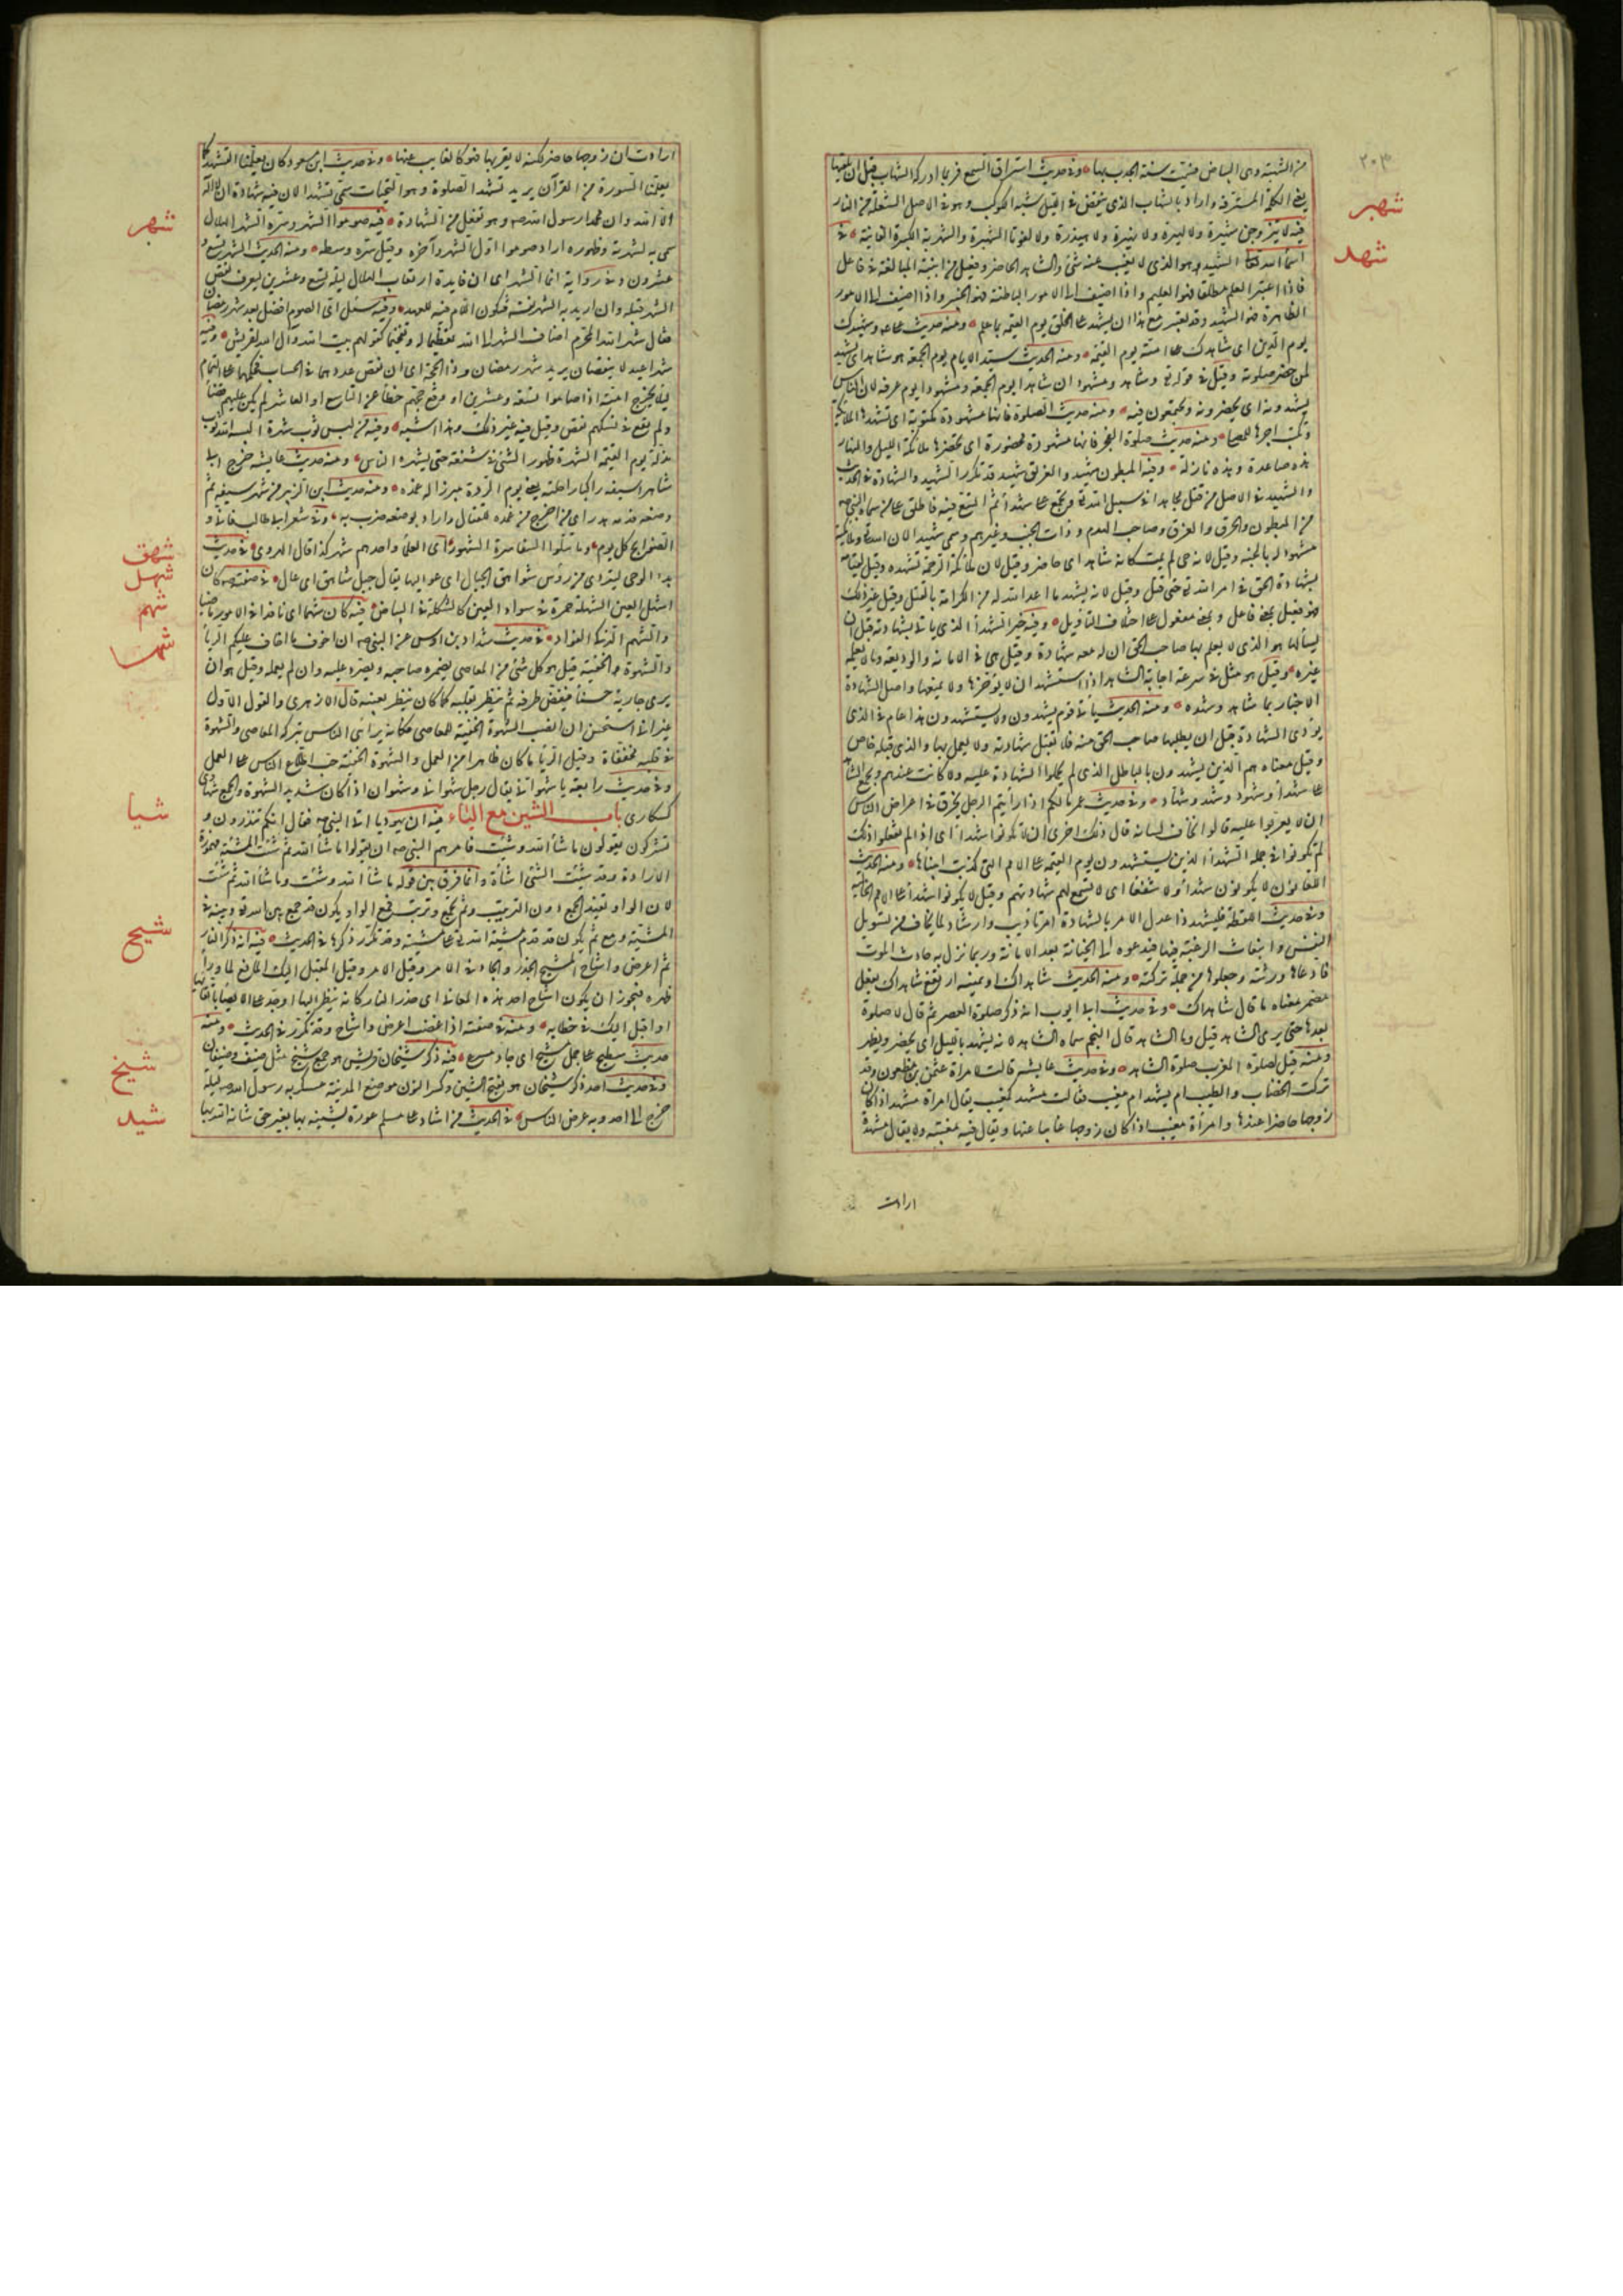 ٢٠٣
من الشهبة وهى البياض فسميت سنة الجدب بها وفى حديث استراق السمع فربما ادركه الشهاب قبل ان يلقيها
يعنى الكلمة المسترقة واراد بالشهاب الذى ينقض فى الليل شبه الكوكب وهو فى الاصل الشعلة من النار
شهبر
فيه لا تتزوجن شهبرة ولا لهبرة ولا نهبرة ولا هيذرة ولا لفوتا الشهبرة والشهربة الكبيرة الفانية فى
شهد
اسماء الله تعالى الشهيد هو الذى لا يغيب عنه شئ والشاهد الحاضر وفعيل من ابنية المبالغة فى فاعل
فاذا اعتبر العلم مطلقا فهو العليم واذا اضيف الى الامور الباطنة فهو الخبير واذا اضيف الى الامور
الظاهرة فهو الشهيد وقد يعتبر مع هذا ان يشهد على الخلق يوم القيمة بما علم ومنه حديث على وشهيدك
يوم الدين اى شاهدك على امته يوم القيمة ومنه الحديث سيد الايام يوم الجمعة هو شاهد اى يشهد
لمن حضر صلوته وقيل فى قوله تعالى وشاهد ومشهود ان شاهدا يوم الجمعة ومشهودا يوم عرفة لان الناس
يشهدونه اى يحضرونه ويجتمعون فيه ومنه حديث الصلوة فانها مشهودة مكتوبة اى تشهدها الملائكة
وتكتب اجرها للمصلى ومنه حديث صلوة الفجر فانها مشهودة محضورة اى يحضرها ملائكة الليل والنهار
هذه صاعدة وهذه نازلة وفيه المبطون شهيد والغريق شهيد قد تكرر الشهيد والشهادة فى الحديث
والشهيد فى الاصل من قتل مجاهدا فى سبيل الله ويجمع على شهداء ثم اتسع فيه فاطلق على من سماه النبى
من المبطون والحرق والغرق وصاحب الهدم وذات الجنب وغيرهم وسمى شهيدا لان الله وملائكته
شهود له بالجنة وقيل لانه حى لم يمت كانه شاهد اى حاضر وقيل لان ملائكة الرحمة تشهده وقيل لقيامه
بشهادة الحق فى امر الله حتى قتل وقيل لانه يشهد ما اعد الله له من الكرامة بالقتل وقيل غير ذلك
فهو فعيل بمعنى فاعل وبمعنى مفعول على اختلاف التأويل وفيه خير الشهداء الذى ياتى بشهادته قبل ان
يسألها هو الذى لا يعلم بها صاحب الحق ان له معه شهادة وقيل هى فى الامانة والوديعة وما لا يعلمه
غيره وقيل هو مثل فى سرعة اجابة الشاهد اذا استشهد ان لا يؤخرها ولا يمنعها واصل الشهادة
الاخبار بما شاهده وشهده ومنه الحديث يأتى قوم يشهدون ولا يستشهدون هذا عام فى الذى
يؤدى الشهادة قبل ان يطلبها صاحب الحق منه فلا تقبل شهادته ولا يعمل بها والذى قبله خاص
وقيل معناه هم الذين يشهدون بالباطل الذى لم يحملوا الشهادة عليه ولا كانت عندهم ويجمع الشاهد
على شهداء وشهود وشهد وشهاد وفى حديث عمر مالكم اذا رأيتم الرجل يخرق فى اعراض الناس
ان لا يعربوا عليه قالوا نخاف لسانه قال ذلك احرى ان لا تكونوا شهداء اى اذا لم تفعلوا ذلك
لم تكونوا فى جملة الشهداء الذين يستشهدون يوم القيمة على الامم التى كذبت انبياءها ومنه الحديث
اللعانون لا يكونون شهداء ولا شفعاء اى لا تسمع لهم شهادتهم وقيل لا يكونوا شهداء على الامم الخالية
وفى حديث اللقطة فليشهد ذا عدل الامر بالشهادة امر تأديب وارشاد لما يخاف من تسويل
النفس وانبعاث الرغبة فيها فيدعوه الى الخيانة بعد الامانة وربما نزل به حادث الموت
فادعاها ورثته وجعلوها من جملة تركته ومنه الحديث شاهداك او يمينه ارتفع شاهداك بفعل
مضمر معناه ما قال شاهداك وفى حديث ابى ايوب انه ذكر صلوة العصر ثم قال لا صلوة
بعدها حتى يرى الشاهد قيل وما الشاهد قال النجم سماه الشاهد لانه يشهد بالليل اى يحضر ويظهر
ومنه قيل لصلوة المغرب صلوة الشاهد وفى حديث عايشة قالت لامراة عثمن بن مظعون وقد
تركت الخضاب والطيب أمشهد ام مغيب فقالت مشهد كمغيب يقال امراة مشهد اذا كان
زوجها حاضرا عندها وامرأة مغيب اذا كان زوجها غايبا عنها ويقال فيه مغيبة ولا يقال مشهدة
ارادت
ارادت ان زوجها حاضر لكنه لا يقربها فهو كالغايب عنها وفى حديث ابن مسعود كان يعلمنا التشهد كما
يعلمنا السورة من القرآن يريد تشهد الصلوة وهو التحيات سمى تشهدا لان فيه شهادة ان لا اله
الا الله وان محمدا رسول الله وهو تفعل من الشهادة فيه صوموا الشهر وسره الشهر الهلال
شهر
سمى به لشهرته وظهوره اراد صوموا اول الشهر وآخره وقيل سره وسطه ومنه الحديث الشهر تسع و
عشرون وفى رواية انما الشهر اى ان فايدة ارتقاب الهلال ليلة تسع وعشرين ليعرف نقص
الشهر قبله وان اريد به الشهر نفسه فتكون اللام فيه للعهد وفيه سئل اى الصوم افضل بعد شهر رمضان
فقال شهر الله المحرم اضاف الشهر الى الله تعظيما له وتفخيما كقولهم بيت الله وآل الله لقريش وفيه
شهرا عيد لا ينقصان يريد شهر رمضان وذا الحجة اى ان نقص عددهما فى الحساب فحكمهما على التمام
ليلا يحرج امته اذا صاموا تسعة وعشرين او وقع حجهم خطأ عن التاسع او العاشر لم يكن عليهم قضاء
ولم يقع فى نسكهم نقص وقيل فيه غير ذلك وهذا اشبه وفيه من لبس ثوب شهرة البسه الله ثوب
مذلة يوم القيمة الشهرة ظهور الشئ فى شنعة حتى يشهره الناس ومنه حديث عايشة خرج ابى
شاهرا سيفه راكبا راحلته يعنى يوم الردة مبرزا له من غمده ومنه حديث ابن الزبير من شهر سيفه ثم
وضعه فدمه هدر اى من اخرجه من غمده للقتال واراد بوضعه ضرب به وفى شعر ابى طالب فانى و
الضوابح كل يوم وما تتلوا السفاسرة الشهور اى العلماء واحدهم شهر كذا قال الهروى فى حديث
شهق
بدء الوحى ليتردى من رؤس شواهق الجبال اى عواليها يقال جبل شاهق اى عال فى صفته كان
شهل
اشهل العين الشهلة حمرة فى سواد العين كالشكلة فى البياض فيه كان شهما اى نافذا فى الامور ماضيا
شهم
والشهم الذكى الفؤاد فى حديث شداد بن اوس عن النبى ان اخوف ما اخاف عليكم الرياء
شها
والشهوة الخفية قيل هو كل شئ من المعاصى يضمره صاحبه ويصر عليه وان لم يعمله وقيل هو ان
يرى جارية حسناء فيغض طرفه ثم ينظر بقلبه كما كان ينظر بعينه قال الازهرى والقول الاول
غير انى استحسن ان انصب الشهوة الخفية للمعاصى فكانه يرائى الناس بتركه المعاصى والشهوة
فى قلبه مخفاة وقيل الرياء ما كان ظاهرا من العمل والشهوة الخفية حب اطلاع الناس على العمل
وفى حديث رابعة يا شهوانى يقال رجل شهوان وشهوانى اذا كان شديد الشهوة والجمع شهاوى
كسكارى باب الشين مع الياء فيه ان يهوديا اتى النبى فقال انكم تنذرون و
شيأ
تشركون تقولون ما شاء الله وشئت فامرهم النبى ان يقولوا ما شاء الله ثم شئت المشئة مهموزة
الارادة وقد شئت الشئ اشاءه وانما فرق بين قوله ما شاء الله وشئت وما شاء الله ثم شئت
لان الواو تفيد الجمع دون الترتيب وثم تجمع وترتب فمع الواو يكون قد جمع بين الله وبينه فى
المشية ومع ثم يكون قد قدم مشية الله على مشيته وقد تكرر ذكرها فى الحديث فيه انه ذكر النار
شيح
ثم اعرض واشاح المشيح الحذر والجاد فى الامر وقيل المقبل اليك المانع لما وراء
ظهره فيجوز ان يكون اشاح احد هذه المعانى اى حذر النار كانه ينظر اليها او جد على الايصاء باتقائها
او اقبل اليك فى خطابه ومنه فى صفته اذا غضب اعرض واشاح وقد تكرر فى الحديث ومنه
حديث سطيح على جمل مشيح اى جاد مسرع فيه ذكر شيخان قريش هو جمع شيخ مثل ضيف وضيفان
شيخ
وفى حديث احد ذكر شيخان هو بفتح الشين وكسر النون موضع المدينة عسكر به رسول الله ليلة
خرج الى احد وبه عرض الناس فى الحديث من اشاد على مسلم عورة يشينه بها بغير حق شانه الله بها
شيد